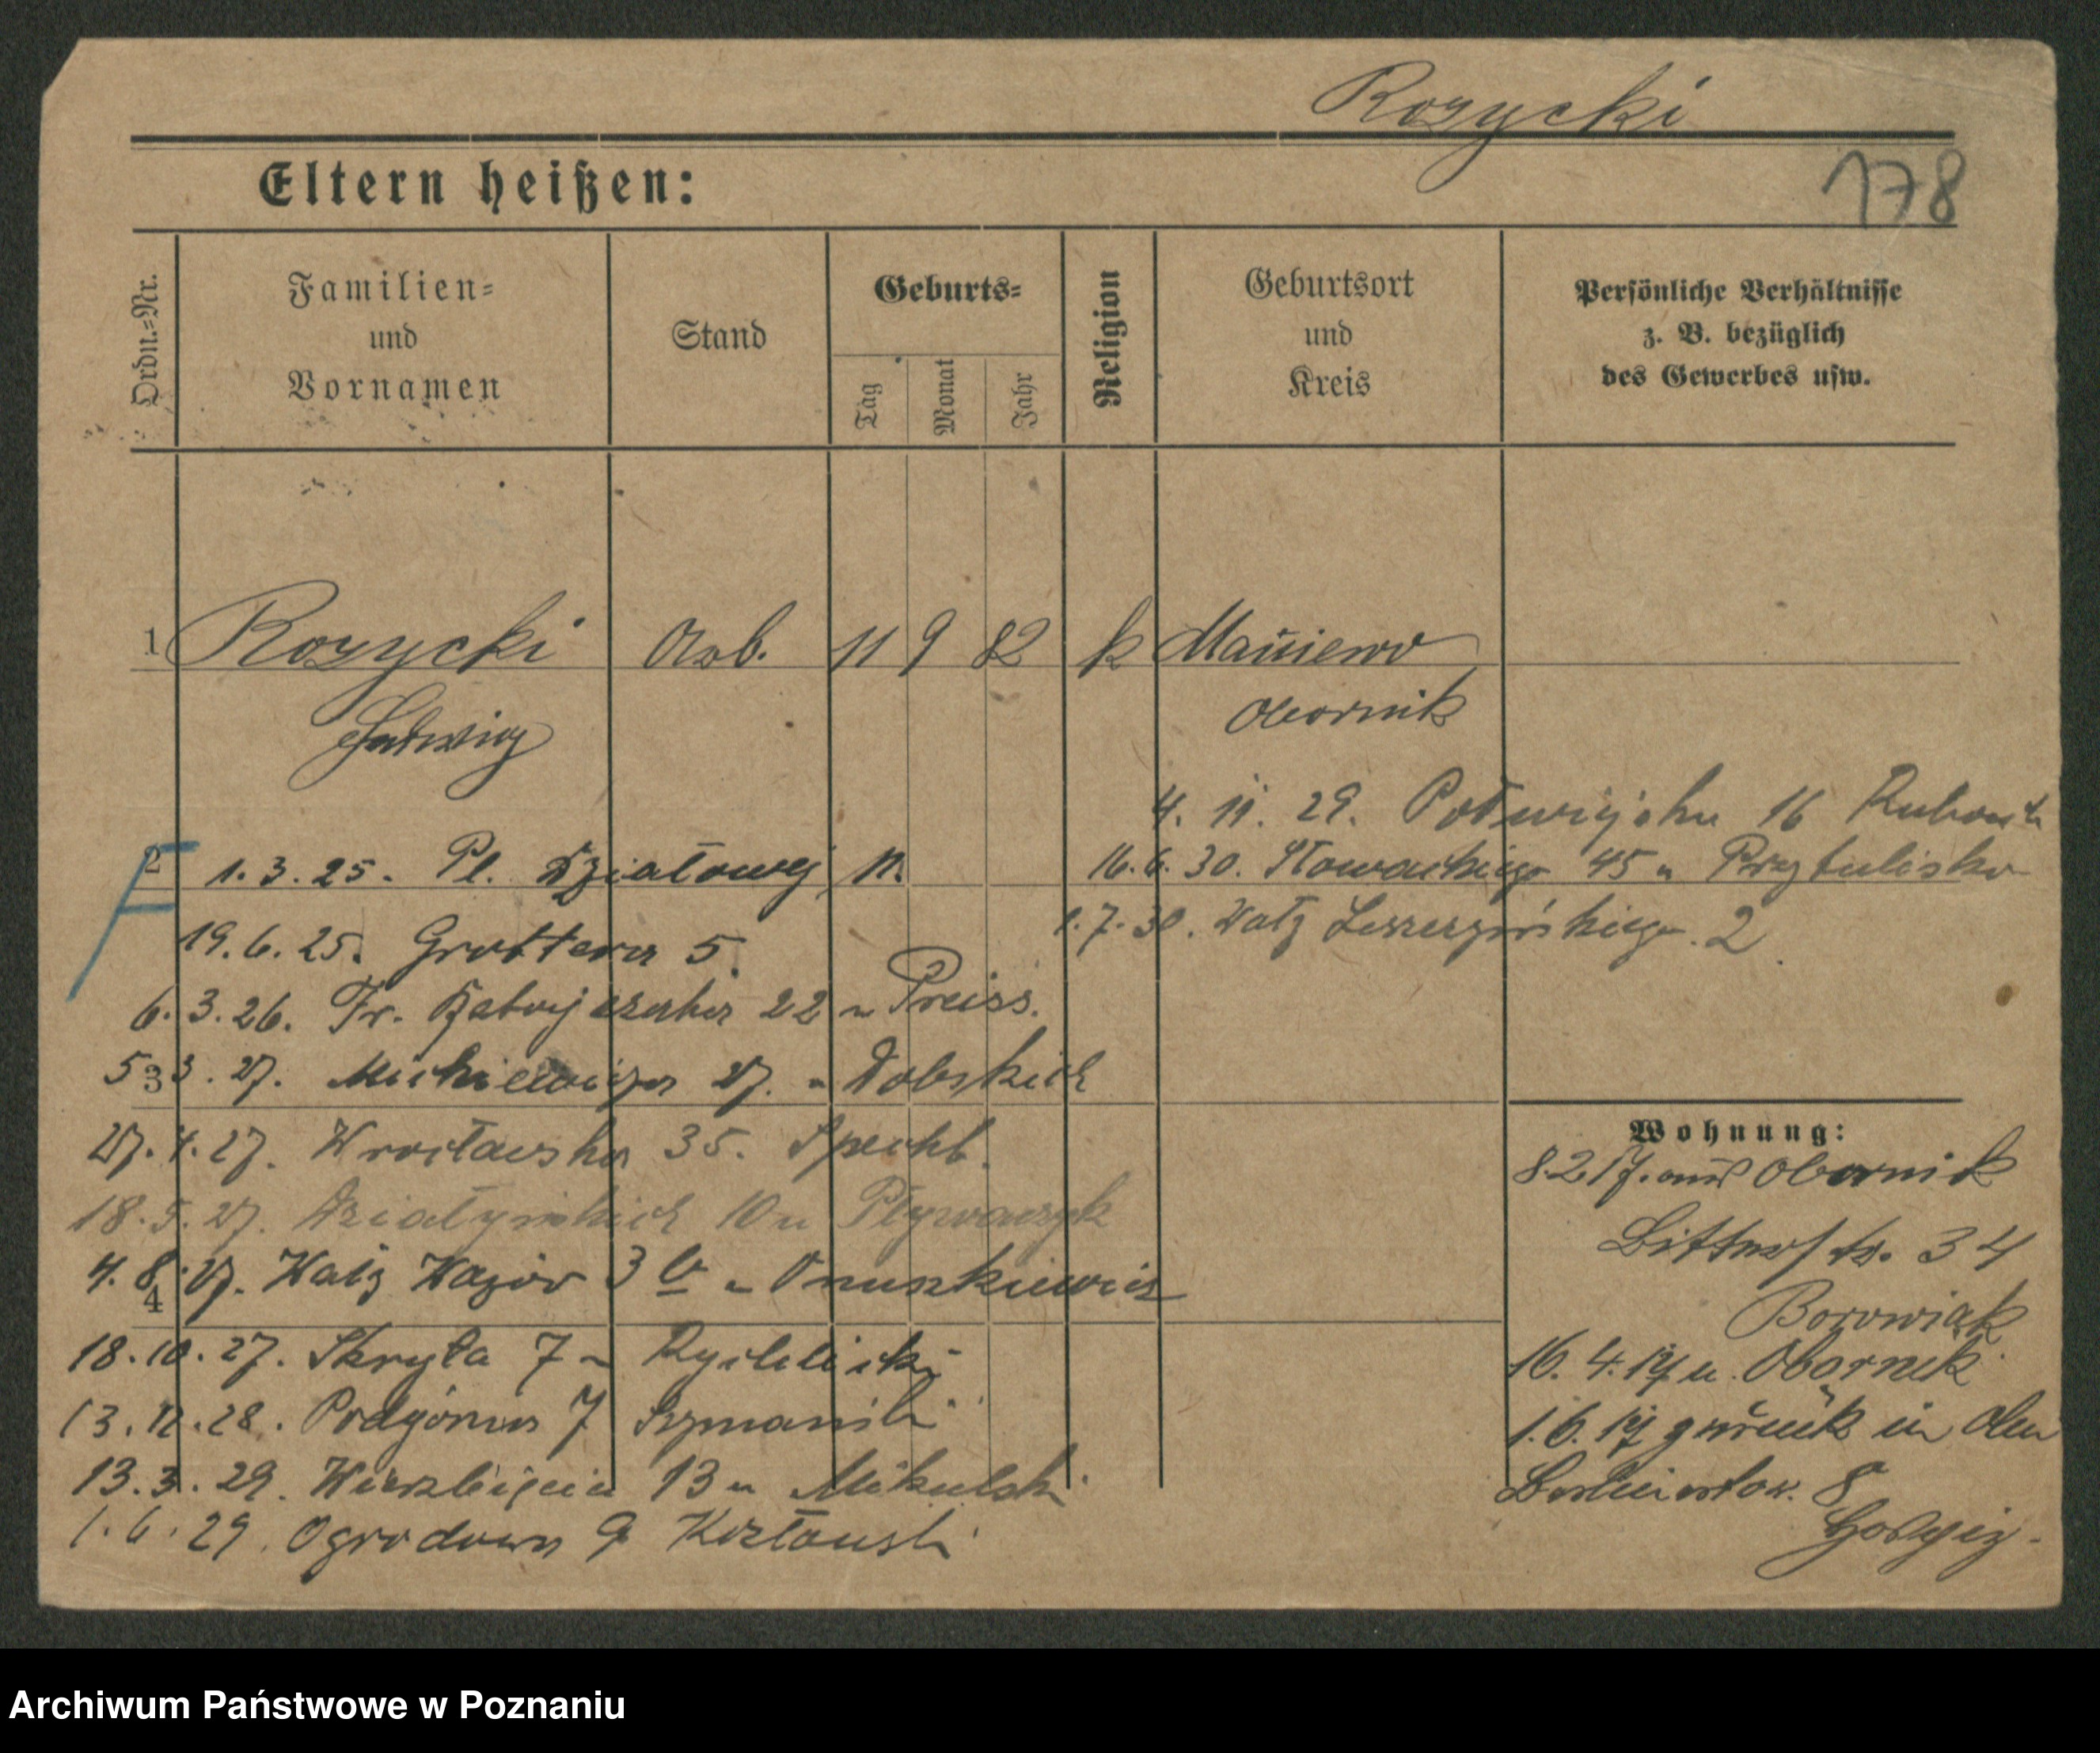 Rozycki
178
Eltern heißen:
Ordn.=Nr.
Familien=
und
Vornamen
Stand
Geburts=
Tag
Monat
Jahr
Religion
Geburtsort
und
Kreis
Persönliche Verhältnisse
z. B. bezüglich
des Gewerbes usw.
1 Rozycki Arb. 11 9 82 k Maniewo
Obornik
4. 11. 29. 16
2 1.3.25. Pl. Działowy 11.
16.6.30. Słowackiego 45 u Przytulisko
19.6.25. Grottera 5.
1.7.30. Wały Leszczyńskiego 2
6.3.26. Fr. Ratajczaka 22 u Preiss.
3
5.3.27. Mickiewicza 27. u Dobskich
27.4.27. Wrocławska 35. Specht.
18.5.27. Działyńskich 10 u Pływaczyk
4
4.8.27. Wały Wazów 3 b u Onuszkiewicz
18.10.27. Skryta 7 u Rychlicki
13.12.28. Podgórna 7 Szymański
13.3.29. Wierzbięcice 13 u Mikulski
1.6.29. Ogrodowa 9 Kozłowski
Wohnung:
8.2.17. aus Obornik
Bitterstr. 34
Borowiak
16.4.17 u. Obornik
1.6.17 zurück in
8
Archiwum Państwowe w Poznaniu